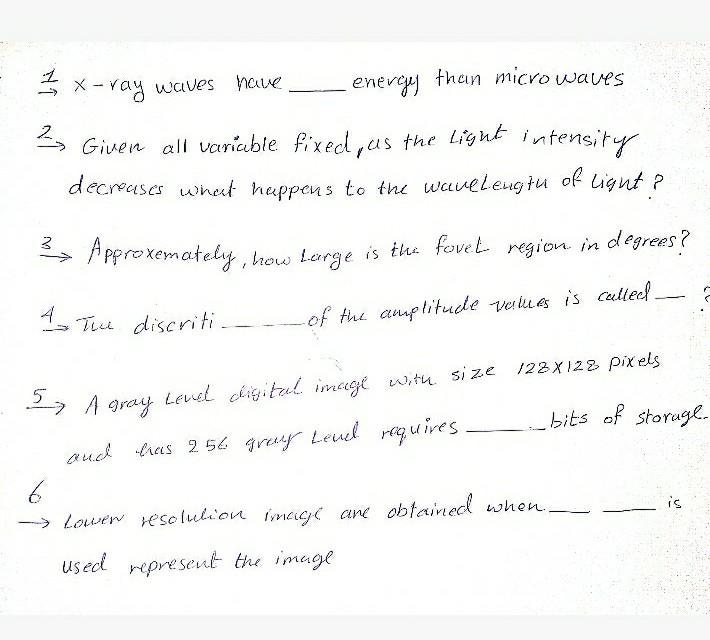 1 X-ray waves have ____ energy than microwaves
2→ Given all variable fixed, as the Light intensity
decreases what happens to the waveLength of Light?
3→ Approxemately, how Large is the fovel region in degrees?
4→ The discriti ____ of the amplitude values is called ____ ?
5→ A gray Level digital image with size 128X128 pixels
and has 256 gray Level requires ____ bits of storage.
6
→ Lower resolution image are obtained when ____ ____ is
used represent the image